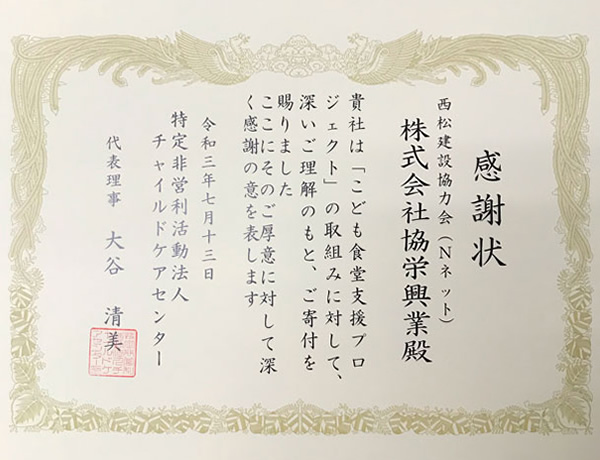 感謝状
西松建設協力会（Nネット）
株式会社協栄興業殿
貴社は「こども食堂支援プロ
ジェクト」の取組みに対して、
深いご理解のもと、ご寄付を
賜りました
ここにそのご厚意に対して深
く感謝の意を表します
令和三年七月十三日
特定非営利活動法人
チャイルドケアセンター
代表理事 大谷 清美